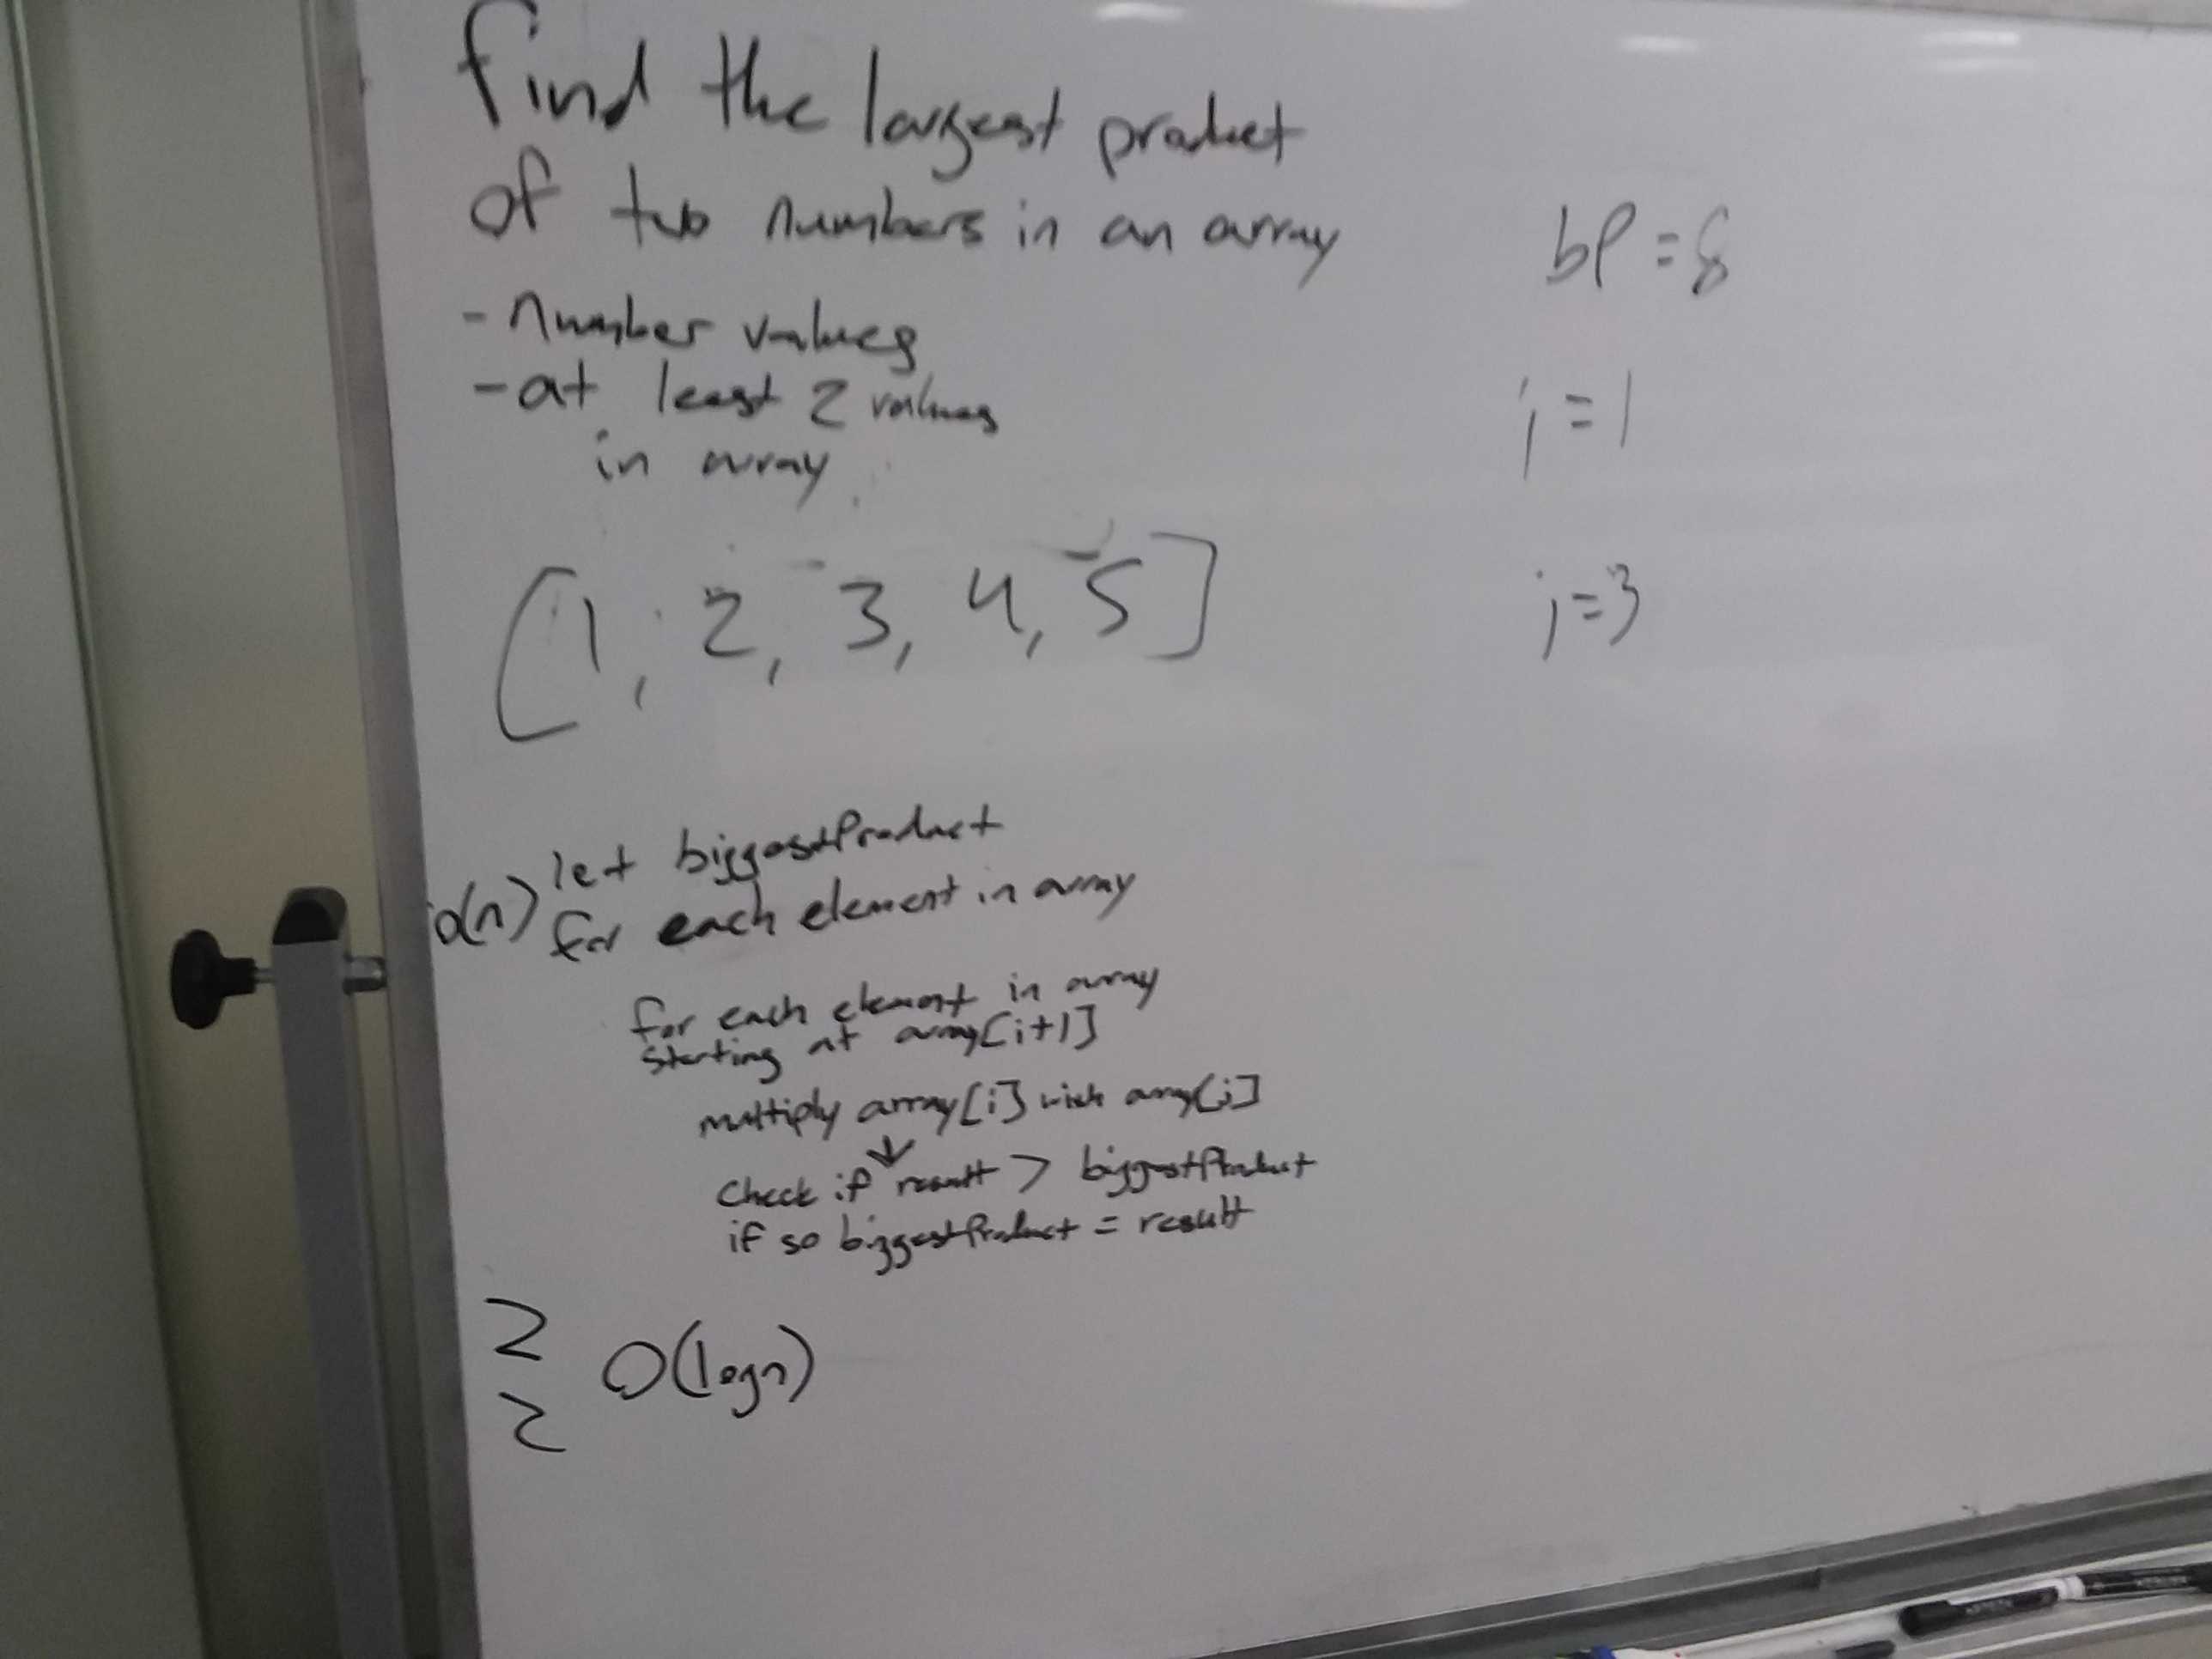 find the largest product
of two numbers in an array
- number values
- at least 2 values
in array
[1, 2, 3, 4, 5]
bP = 8
i = 1
j = 3
let biggestProduct
O(n) for each element in array
for each element in array
starting at array[i+1]
multiply array[i] with array[j]
check if result > biggestProduct
if so biggestProduct = result
2
O(logn)
2